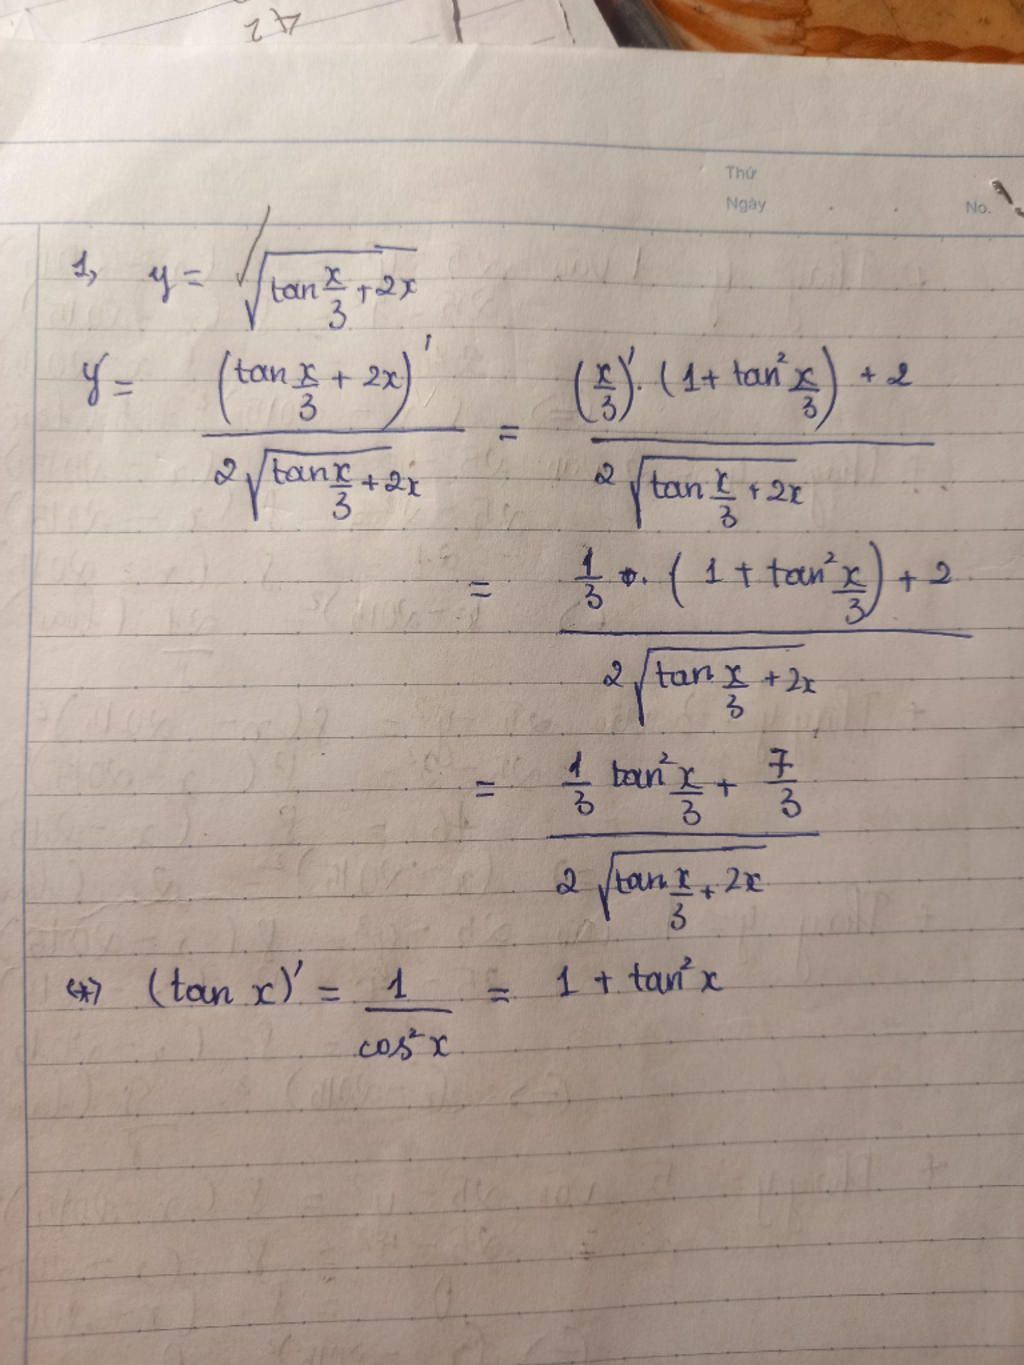 42
Thứ
Ngày
No.
1, y = √(tan x/3 + 2x)
y' = (tan x/3 + 2x)' / 2√(tan x/3 + 2x) = ((x/3)' . (1 + tan² x/3) + 2) / 2√(tan x/3 + 2x)
= (1/3 . (1 + tan² x/3) + 2) / 2√(tan x/3 + 2x)
= (1/3 tan² x/3 + 7/3) / 2√(tan x/3 + 2x)
(*) (tan x)' = 1/cos² x = 1 + tan² x